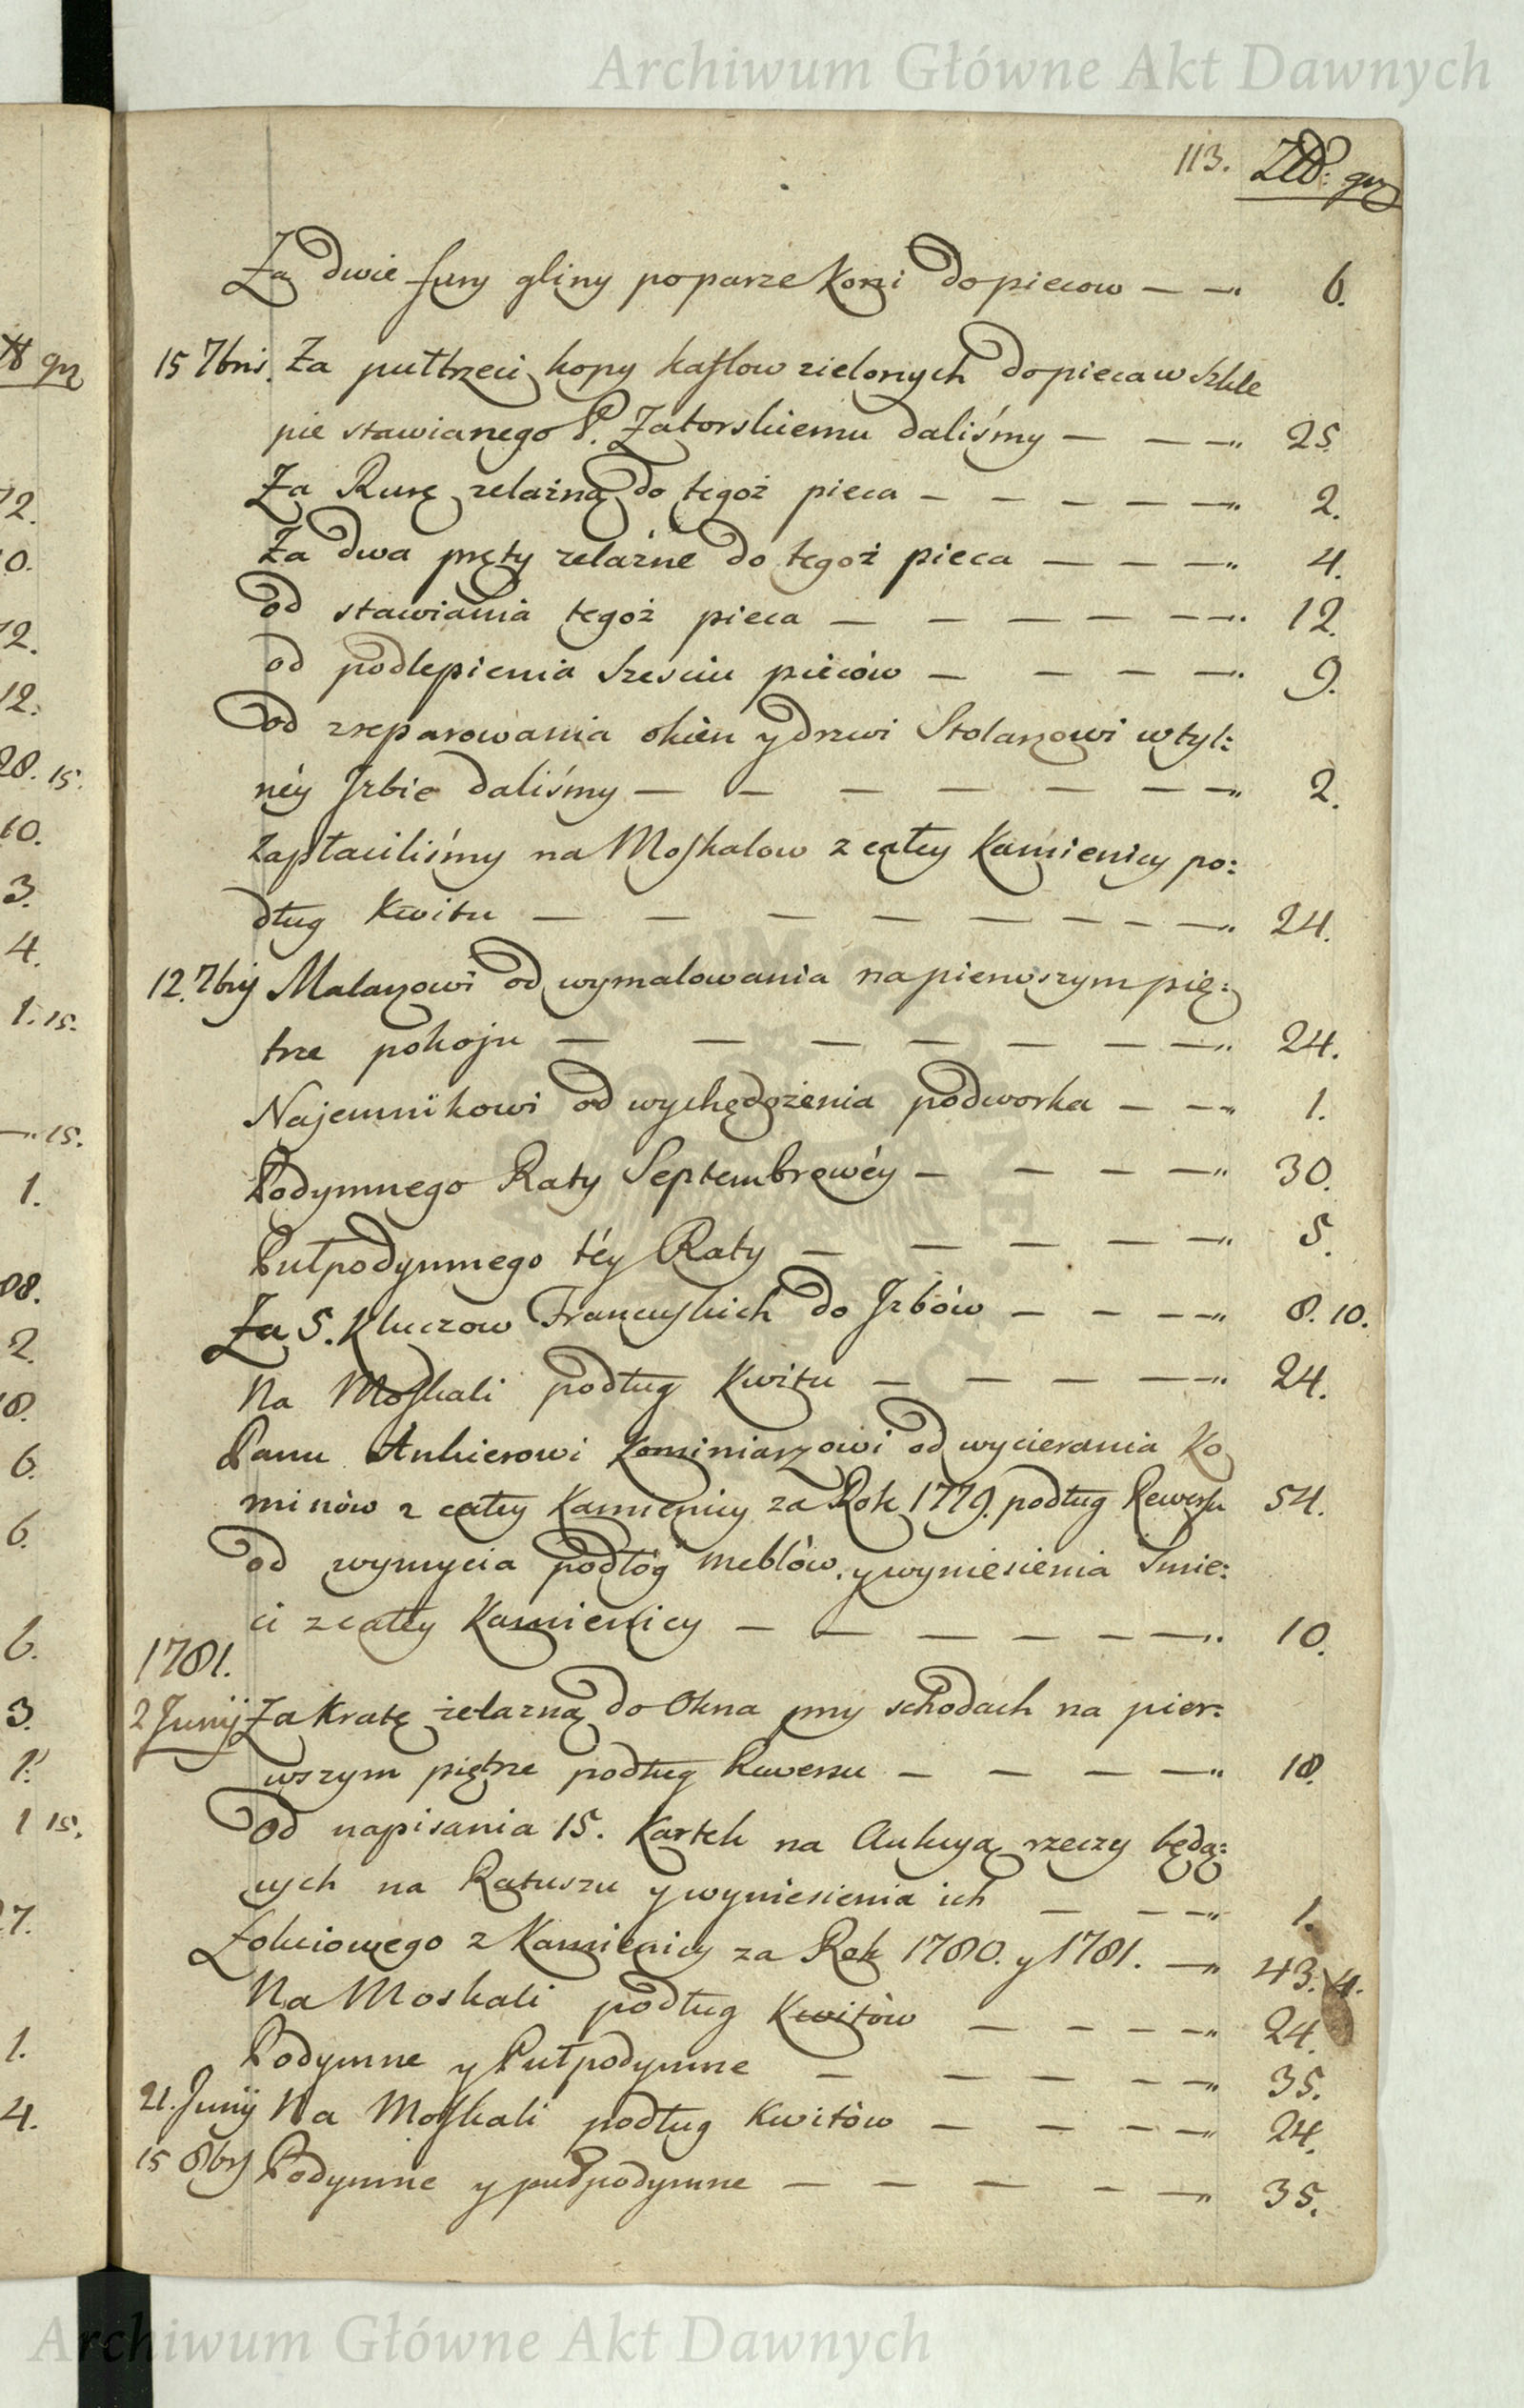 Archiwum Główne Akt Dawnych
113. Złł: gr
Za dwie fury gliny po parze koni do piecow — — 6.
15 7bris. Za pułtrzeci kopy kaflow zielonych do pieca w Szkle
pie stawianego P. Zatorskiemu daliśmy — — — 25
Za Rurę zelazną do tegoż pieca — — — — — 2.
Za dwa pręty zelazne do tegoż pieca — — — 4.
od stawiania tegoż pieca — — — — — — 12.
od podlepienia Szesciu pieców — — — — 9.
od zreparowania okien y drzwi Stolarzowi w tyl:
néy Jzbie daliśmy — — — — — — — 2.
zapłaciliśmy na Moskalow z całey Kamienicy po:
dług Kwitu — — — — — — — — 24.
12. 7bris Malarzowi od wymalowania na pierwszym pię:
trze pokoju — — — — — — — 24.
Najemnikowi od wychędożenia podworka — — — 1.
Podymnego Raty Septembrowéy — — — — 30.
Pułpodymnego téy Raty — — — — — 5.
Za 5. Kluczow Francuskich do Jzbów — — — — 8. 10.
Na Moskali podług Kwitu — — — — — 24.
Panu Ankierowi Kominiarzowi od wycierania Ko
minów z całey Kamienicy za Rok 1779. podług Rewersu 54.
od wymycia podłóg meblów, y wyniesienia Smie:
ci z całey Kamienicy — — — — — — 10.
1781.
2 Junij Za Kratę żelazną do Okna przy schodach na pier:
wszym piętrze podług Rewersu — — — — 18.
Od napisania 15. Kartek na Aukcyą rzeczy będą:
cych na Ratuszu y wyniesienia ich — — — 1.
Łokciowego z Kamienicy za Rok 1780. y 1781. — 43. 4.
Na Moskali podług Kwitów — — — — 24.
Podymne y Pułpodymne — — — — — 35.
21. Junij Na Moskali podług Kwitów — — — — 24.
15 8bris Podymne y pułpodymne — — — — — 35.
Archiwum Główne Akt Dawnych